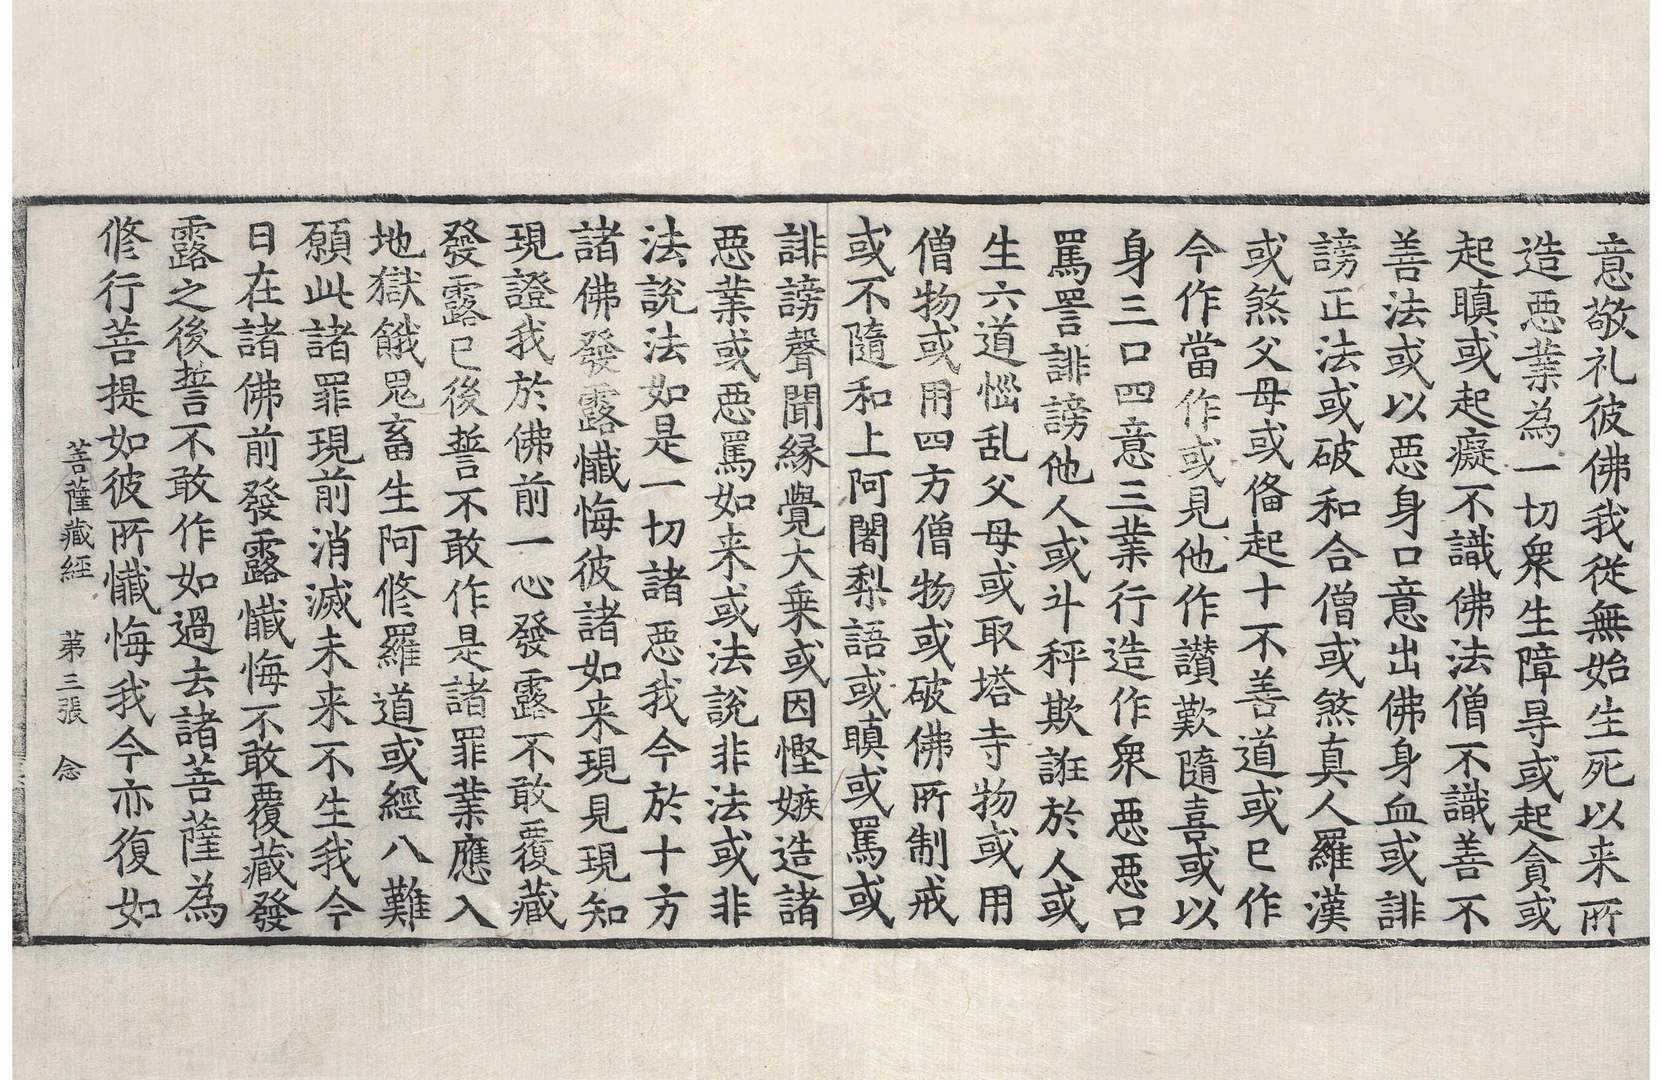 意敬礼彼佛我從無始生死以来所
造惡業為一切衆生障㝵或起貪或
起瞋或起癡不識佛法僧不識善不
善法或以惡身口意出佛身血或誹
謗正法或破和合僧或煞真人羅漢
或煞父母或俻起十不善道或已作
今作當作或見他作讃歎隨喜或以
身三口四意三業行造作衆惡惡口
罵詈誹謗他人或斗秤欺誑於人或
生六道惱乱父母或取塔寺物或用
僧物或用四方僧物或破佛所制戒
或不隨和上阿闍梨語或瞋或罵或
誹謗聲聞縁覺大乗或因慳嫉造諸
惡業或惡罵如来或法說非法或非
法說法如是一切諸惡我今於十方
諸佛發露懺悔彼諸如来現見現知
現證我於佛前一心發露不敢覆藏
發露已後誓不敢作是諸罪業應入
地獄餓鬼畜生阿修羅道或經八難
願此諸罪現前消滅未来不生我今
日在諸佛前發露懺悔不敢覆藏發
露之後誓不敢作如過去諸菩薩為
修行菩提如彼所懺悔我今亦復如
菩薩藏經 苐三張 念